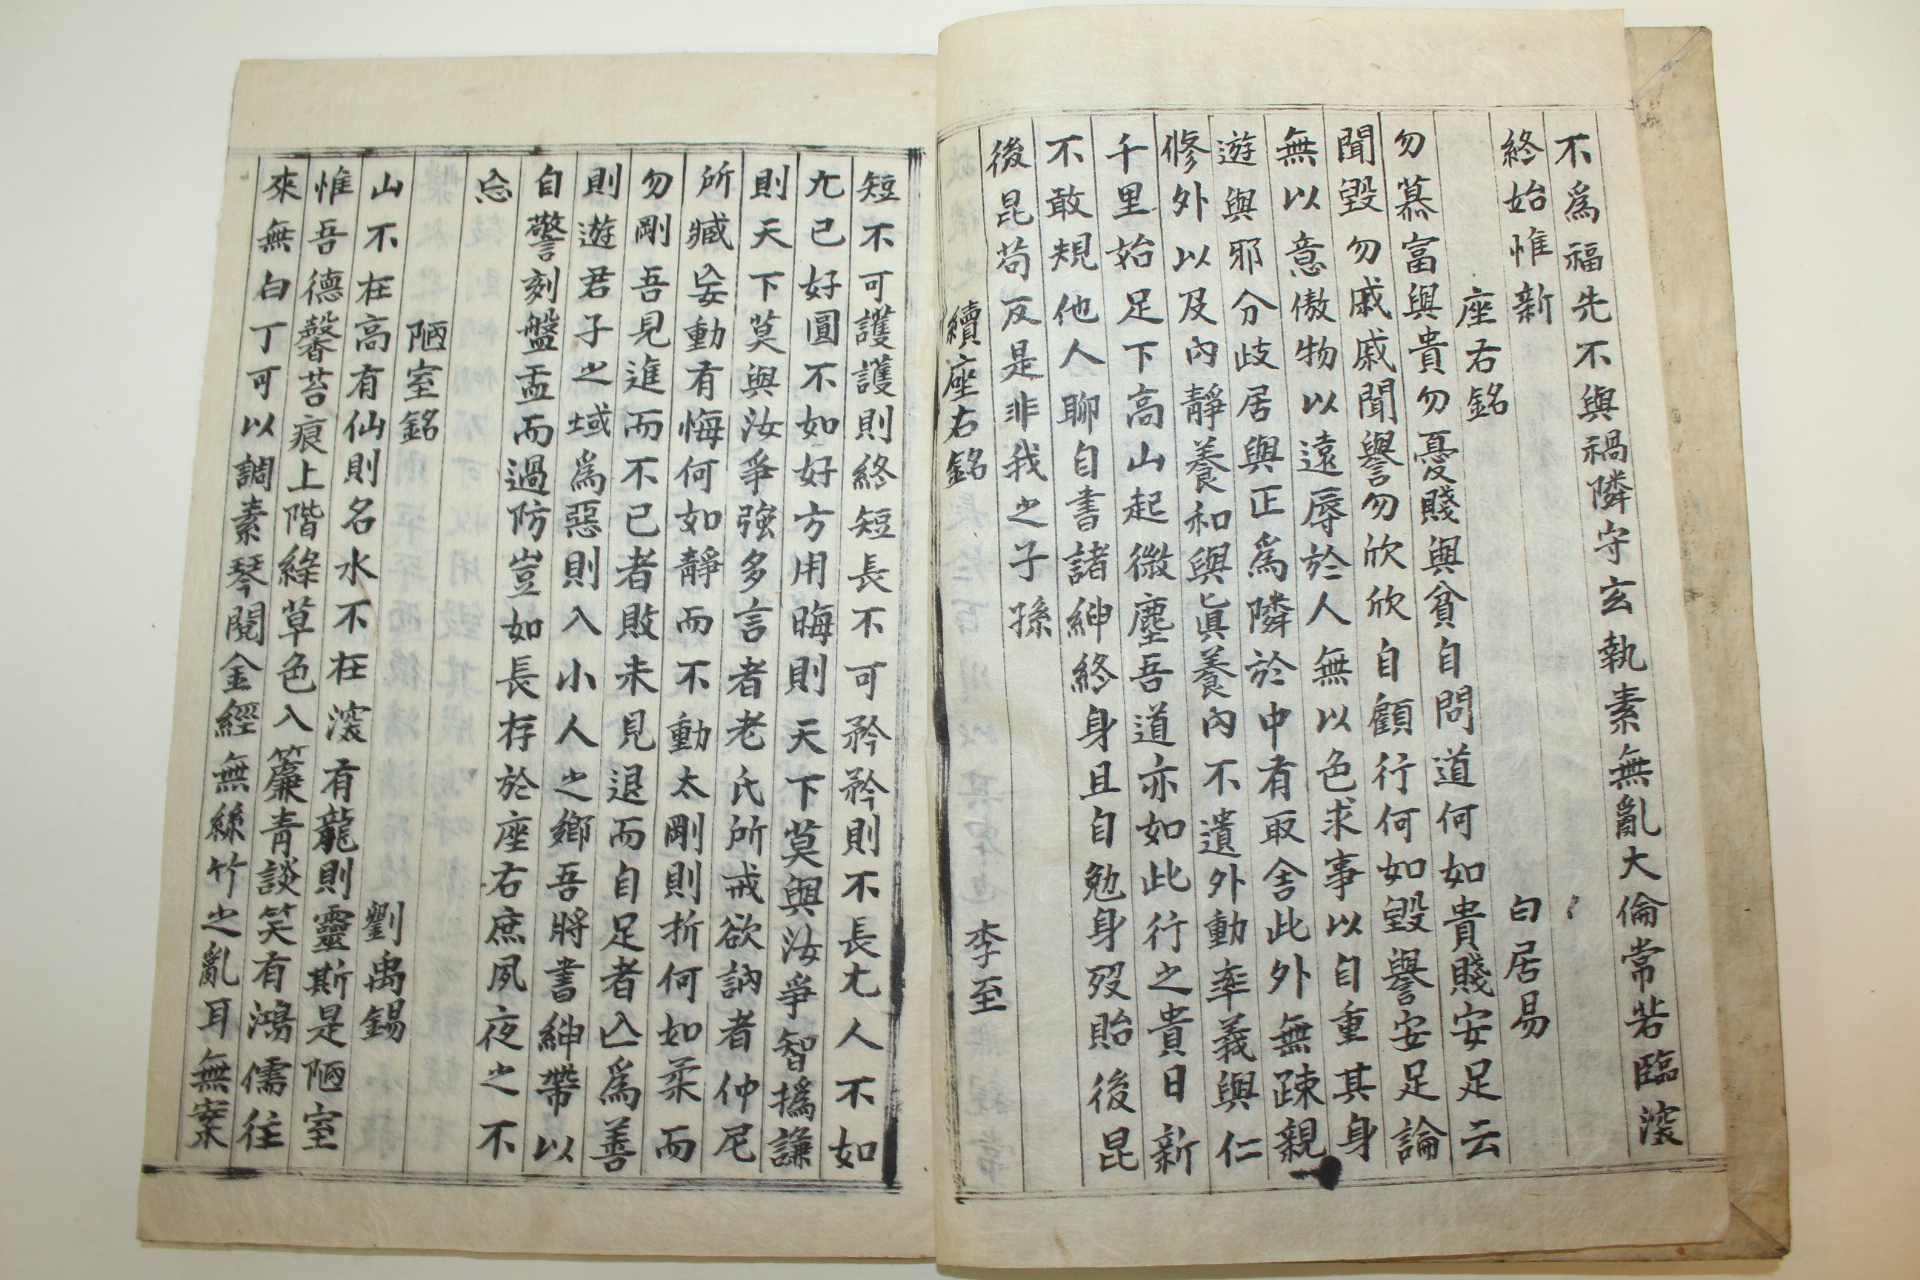 不爲福先不與禍隣守玄執素無亂大倫常若臨深
終始惟新
座右銘 白居易
勿慕富與貴勿憂賤與貧自問道何如貴賤安足云
聞毀勿戚戚聞譽勿欣欣自顧行何如毀譽安足論
無以意傲物以遠辱於人無以色求事以自重其身
遊與邪分歧居與正爲隣於中有取舍此外無疎親
修外以及內靜養和與眞養內不遺外動率義與仁
千里始足下高山起微塵吾道亦如此行之貴日新
不敢規他人聊自書諸紳終身且自勉身歿貽後昆
後昆苟反是非我之子孫
續座右銘 李至
短不可護護則終短長不可矜矜則不長尤人不如
尤己好圓不如好方用晦則天下莫與汝爭智撝謙
則天下莫與汝爭強多言者老氏所戒欲訥者仲尼
所臧妄動有悔何如靜而不動太剛則折何如柔而
勿剛吾見進而不已者敗未見退而自足者亾爲善
則遊君子之域爲惡則入小人之鄉吾將書紳帶以
自警刻盤盂而過防豈如長存於座右庶夙夜之不
忘
陋室銘 劉禹錫
山不在高有仙則名水不在深有龍則靈斯是陋室
惟吾德馨苔痕上階綠草色入簾青談笑有鴻儒往
來無白丁可以調素琴閱金經無絲竹之亂耳無案